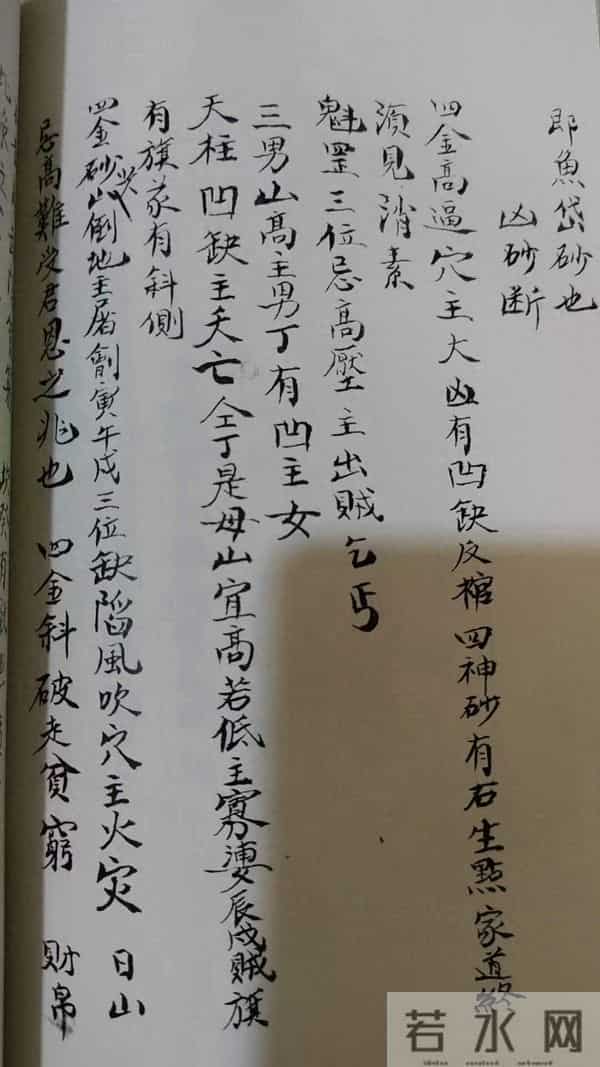 即魚袋砂也
凶砂斷
四金高逼穴主大凶有凹缺反棺四神砂有石生點家道終
須見消素
魁罡三位忌高壓主出賊乞丐
三男山高主男丁有凹主女
天柱凹缺主夭亡仝丁是母山宜高若低主寡妻辰戌賊旗
有旗家有斜側
四金砂尖山倒地主屠劊寅午戌三位缺陷風吹穴主火灾 日山
忌高難受君恩之兆也 四金斜破走貧窮 財帛
若水网